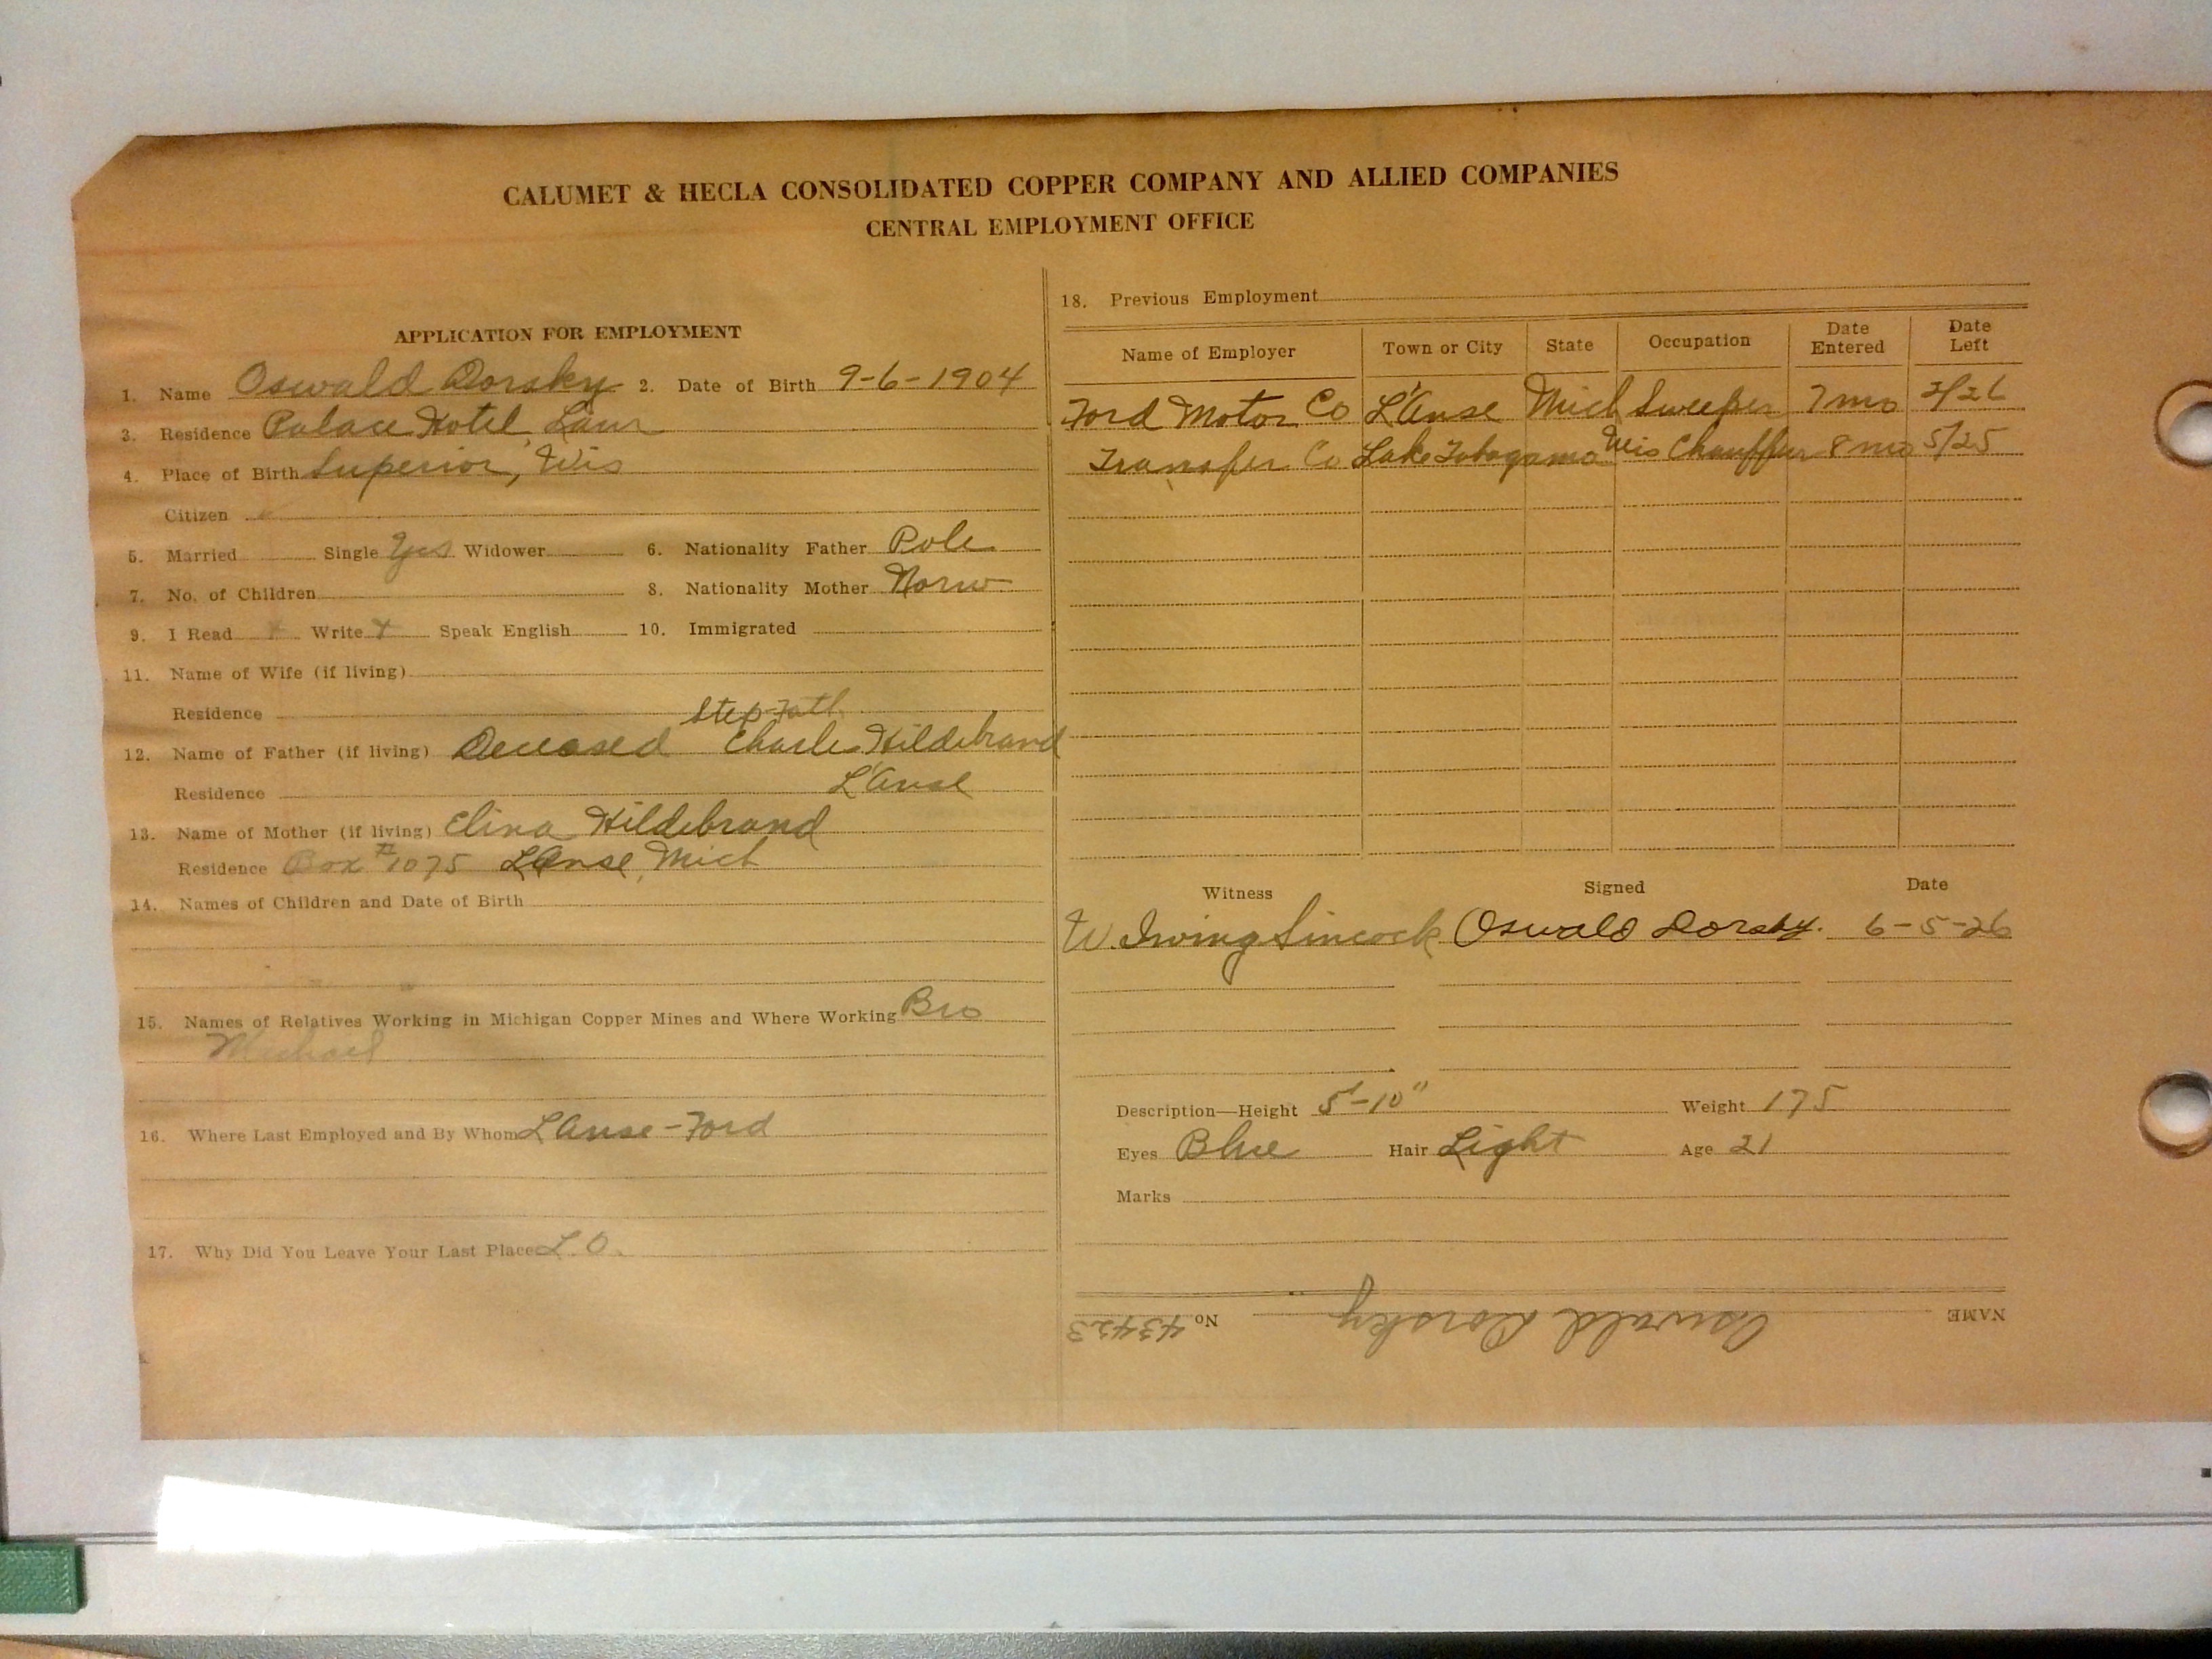 CALUMET & HECLA CONSOLIDATED COPPER COMPANY AND ALLIED COMPANIES
CENTRAL EMPLOYMENT OFFICE
APPLICATION FOR EMPLOYMENT
1. Name Oswald Dorsky 2. Date of Birth 9-6-1904
3. Residence Palace Hotel, Laur
4. Place of Birth Superior, Wis
Citizen
5. Married Single Yes Widower 6. Nationality Father Pole
7. No. of Children 8. Nationality Mother Norw
9. I Read x Write x Speak English 10. Immigrated
11. Name of Wife (if living)
Residence
Step-Fath
12. Name of Father (if living) Deceased Charles Hildebrand
Residence L'Anse
13. Name of Mother (if living) Elina Hildebrand
Residence Box #1075 L'Anse, Mich
14. Names of Children and Date of Birth
15. Names of Relatives Working in Michigan Copper Mines and Where Working Bro
Michael
16. Where Last Employed and By Whom L'Anse-Ford
17. Why Did You Leave Your Last Place L.O.
18. Previous Employment
Name of Employer Town or City State Occupation Date Entered Date Left
Ford Motor Co L'Anse Mich Sweeper 7 mo 2/26
Transfer Co Lake Wis Chauffur 8 mo 5/25
Witness Signed Date
W. Irving Sincock Oswald Dorsky. 6-5-26
Description—Height 5'-10" Weight 175
Eyes Blue Hair Light Age 21
Marks
NAME Oswald Dorsky No 43423